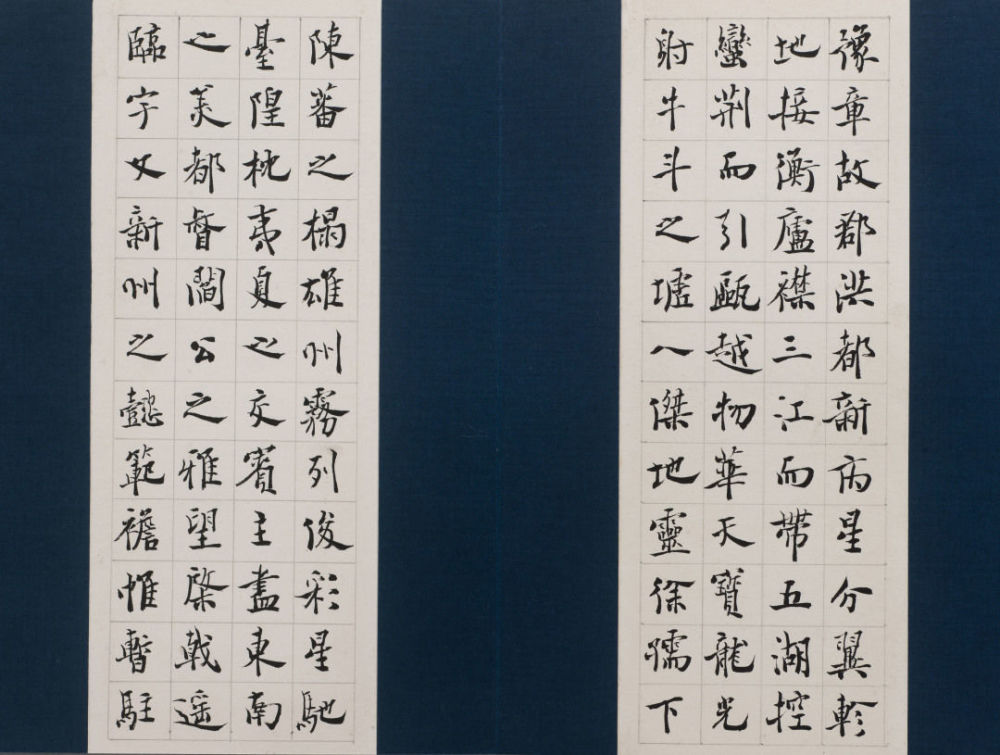 豫章故郡洪都新府星分翼軫
地接衡廬襟三江而帶五湖控
蠻荆而引甌越物華天寶龍光
射牛斗之墟人傑地靈徐孺下
陳蕃之榻雄州霧列俊彩星馳
臺隍枕夷夏之交賓主盡東南
之美都督閻公之雅望棨戟遥
臨宇文新州之懿範襜帷暫駐